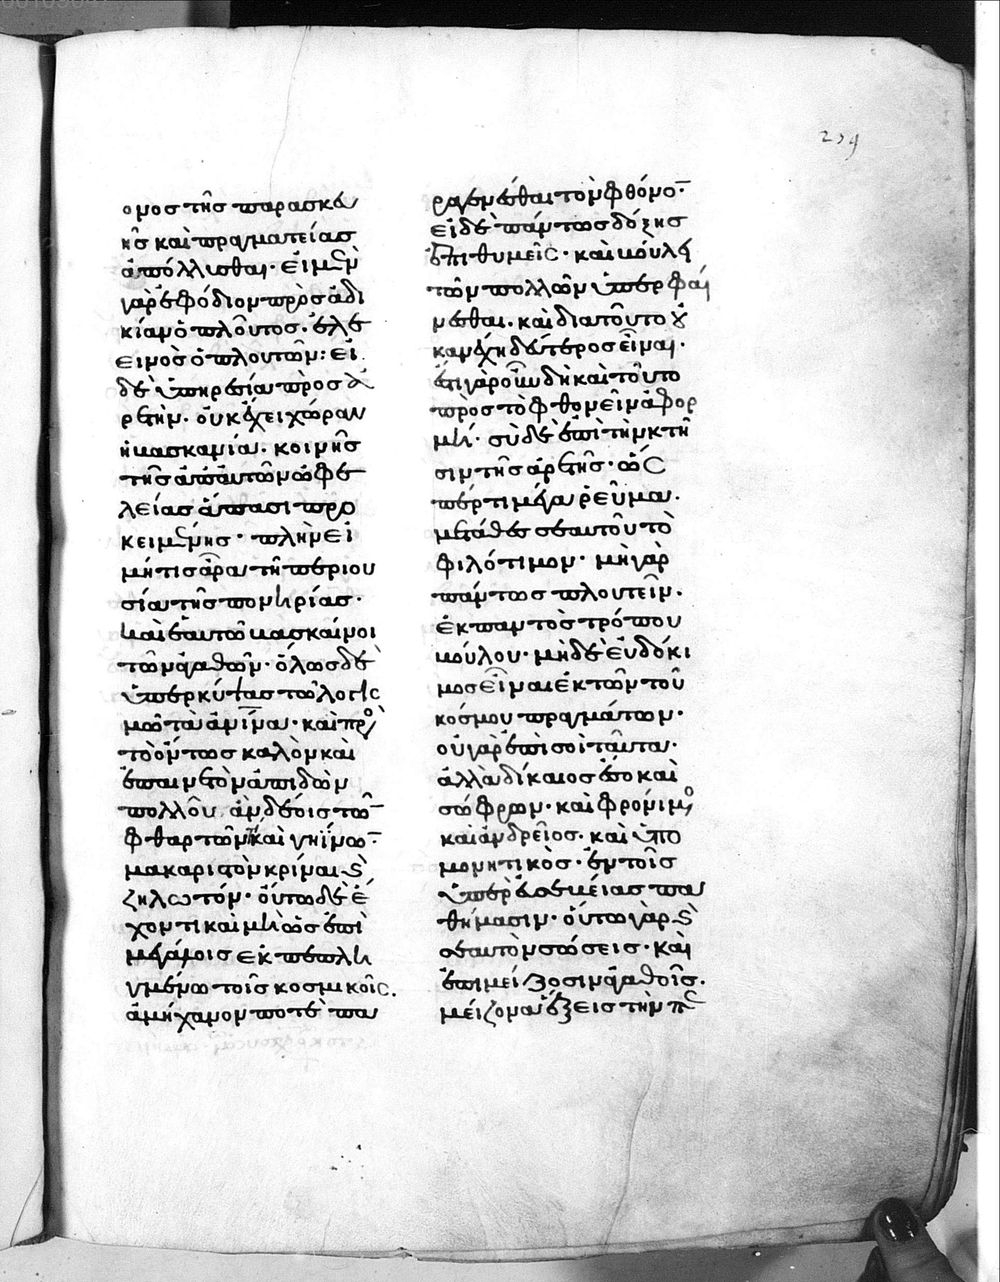 239
ομος τῆς παρασκευ
ῆς καὶ πραγματείας
ἀπόλλυσθαι· εἰ μὲν
γὰρ ἐφόδιον πρὸς ἀδι
κίαν ὁ πλοῦτος· ἐλε
εινὸς ὁ πλουτῶν: εἰ
δὲ ὑπηρεσία πρὸς ἀ
ρετήν· οὐκ ἔχει χώραν
ἡ βασκανία· κοινῆς
τῆς ἀπ' αὐτῶν ὠφε
λείας ἅπασι προ
κειμένης· πλὴν εἰ
μή τις ἄρα τῆ περιου
σία τῆς πονηρίας·
καὶ ἑαυτῶ βασκαίνοι
τῶν ἀγαθῶν· ὅλως δὲ
ὑπερκύψας τῶ λογισ
μῶ τὰ ἀν̅ι̅να· καὶ πρὸς
τὸ ὄντως καλὸν καὶ
ἐπαινετὸν ἀπιδὼν
πολλοῦ ἂν δέοις τῶν
φθαρτῶν καὶ γηΐνων
μακαριστὸν κρίναι ἢ
ζηλωτόν· οὕτω δὲ ἔ
χοντι καὶ μὴ ὡς ἐπὶ
μεγάλοις ἐκπεπλη
γμένω τοῖς κοσμικοῖς.
ἀμήχανον ποτὲ πα
ραγενέσθαι τὸν φθόνον·
εἰ δὲ πάντως δόξης
ἐπιθυμεῖς· καὶ βούλει
τῶν πολλῶν ὑπερφαί
νεσθαι. καὶ διατοῦτο οὐ
κ ἀνέχη δεύτερος εἶναι·
ἔστι γὰρ οὖν δὴ καὶ τοῦτο
πρὸς τὸ φθονεῖν ἀφορ
μή· σὺ δὲ ἐπὶ τὴν κτῆ
σιν τῆς ἀρετῆς· ὥς
πέρ τι μέγα ῥεῦμα.
μετάθες σεαυτοῦ τὸ
φιλότιμον· μὴ γὰρ
πάντως πλουτεῖν.
ἐκ παντὸς τρόπου
βούλου· μηδὲ εὐδόκι
μος εἶναι ἐκ τῶν τοῦ
κόσμου πραγμάτων·
οὐ γὰρ ἐπὶ σοὶ ταῦτα·
ἀλλὰ δίκαιος ἔσο καὶ
σώφρων· καὶ φρόνιμος
καὶ ἀνδρεῖος. καὶ ὑπο
μονητικὸς· ἐν τοῖς
ὑπὲρ εὐσεβείας πα
θήμασιν· οὕτω γὰρ ἢ
σεαυτὸν σώσεις· καὶ
ἐπι μείζοσιν ἀγαθοῖς.
μείζονα ἕξεις τὴν πε